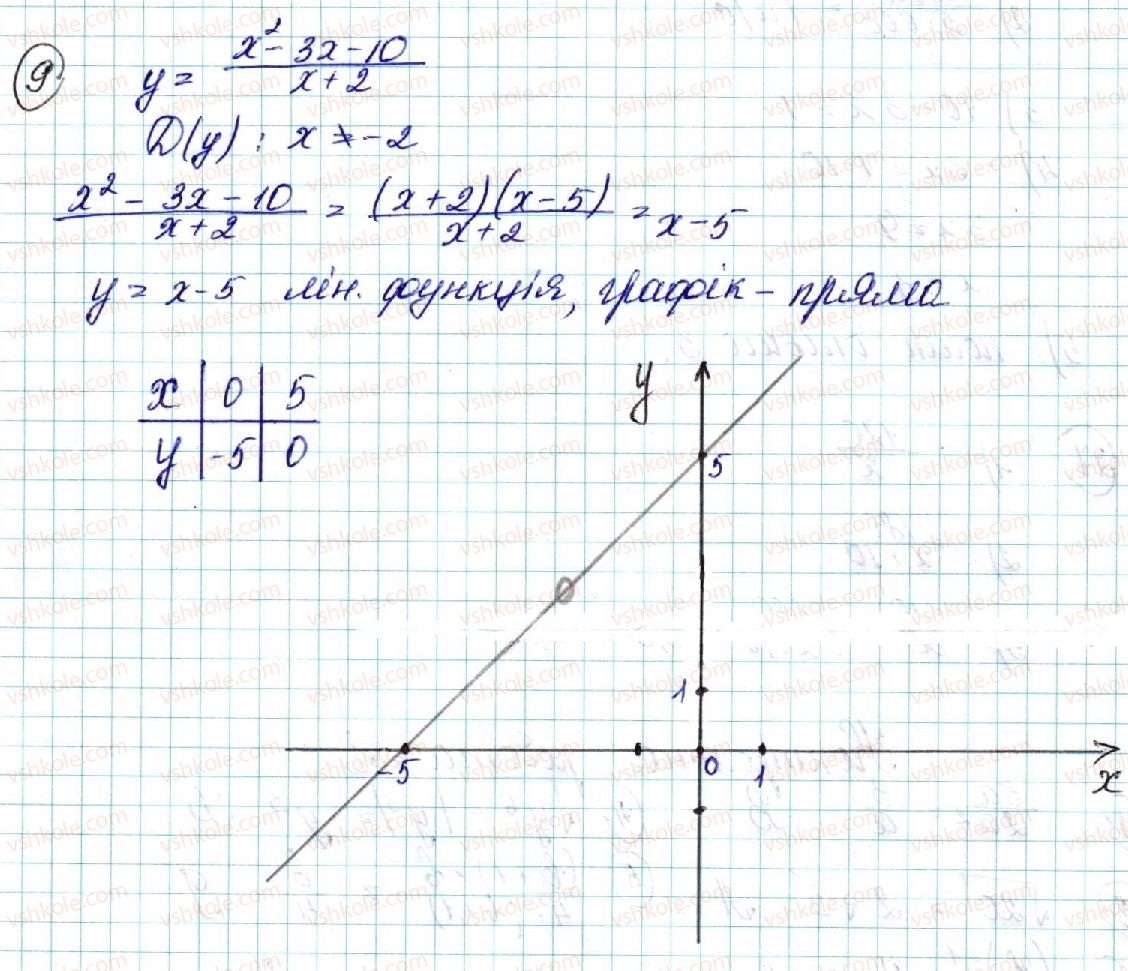 9
y = (x² - 3x - 10)/(x + 2)
D(y) : x ≠ -2
(x² - 3x - 10)/(x + 2) = ((x + 2)(x - 5))/(x + 2) = x - 5
y = x - 5 лін. функція, графік - пряма
x | 0 | 5
y | -5 | 0
y
5
1
-5 0 1
x
vshkole.com